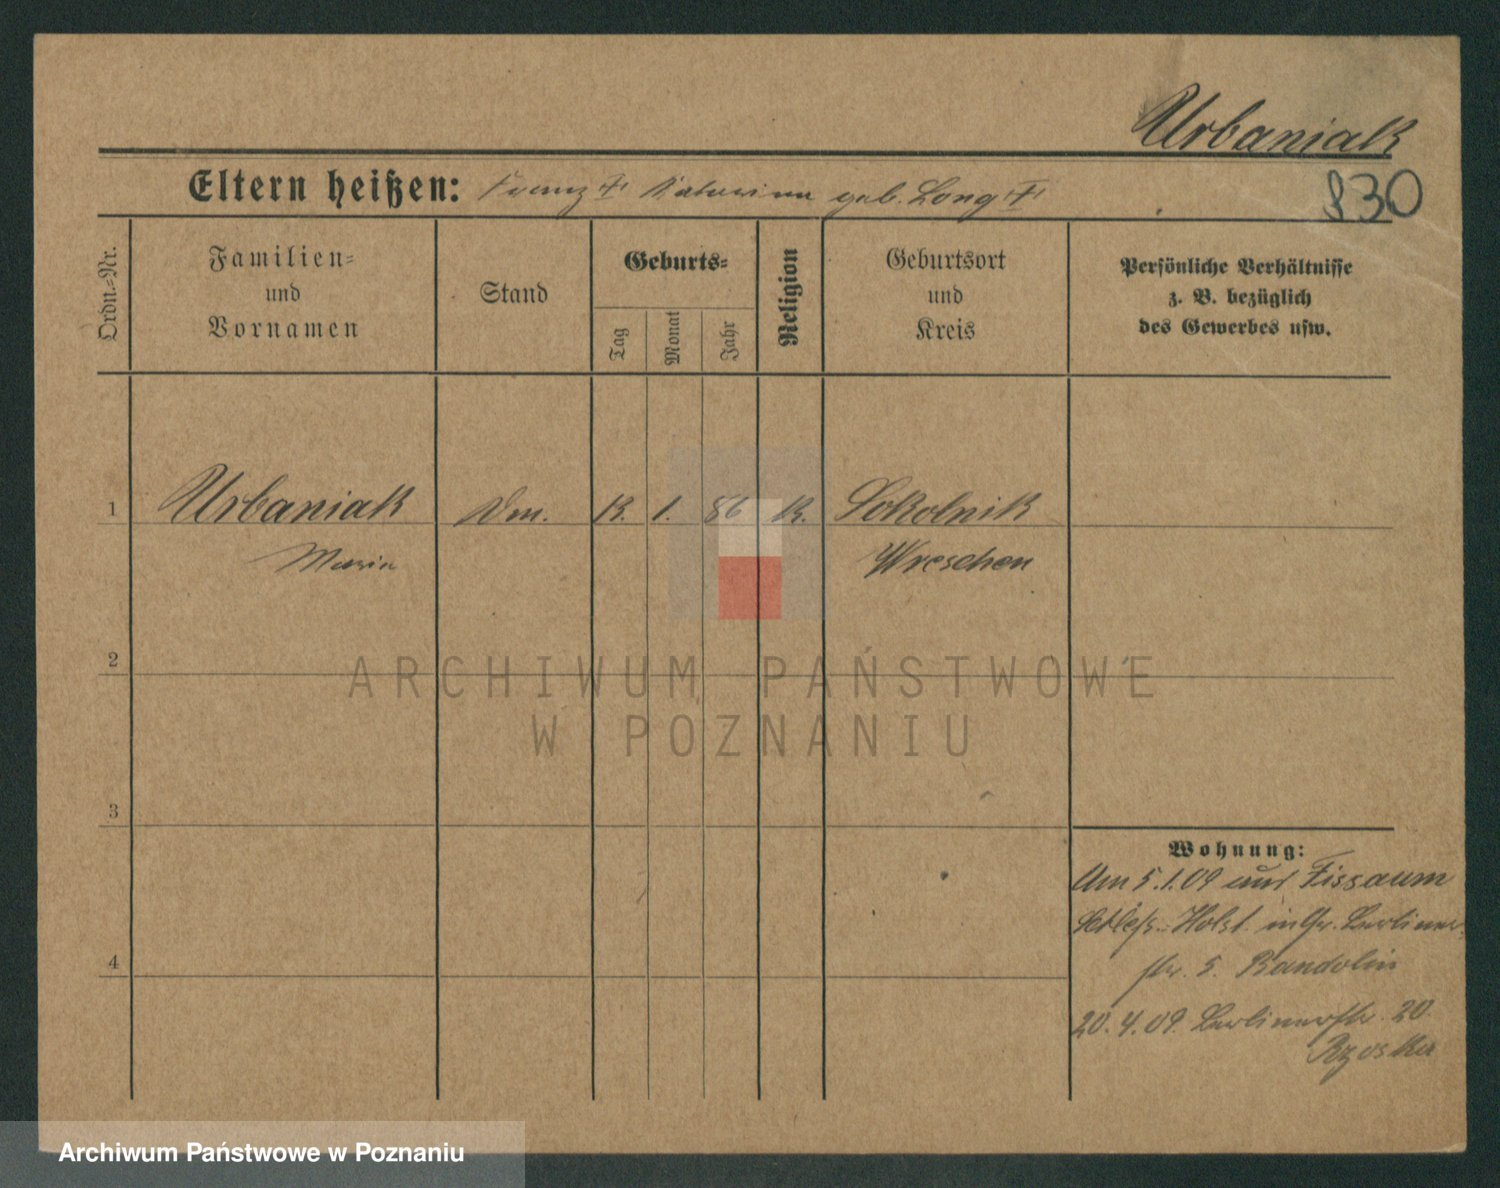 Urbaniak
Eltern heißen: Franz † Katarina geb. Long †
830
Ordn.-Nr.
Familien-
und
Vornamen
Stand
Geburts-
Tag
Monat
Jahr
Religion
Geburtsort
und
Kreis
Persönliche Verhältnisse
z. B. bezüglich
des Gewerbes usw.
1 Urbaniak 1. 86 K. Sokolnik
Maria Wreschen
2
3
4
Wohnung:
Am 5.1.09 aus
Holst. in Gr. Berliner
str. 5. Bandolin
20.4.09. Berlinerstr. 20
Rzoska
ARCHIWUM PAŃSTWOWE
W POZNANIU
Archiwum Państwowe w Poznaniu